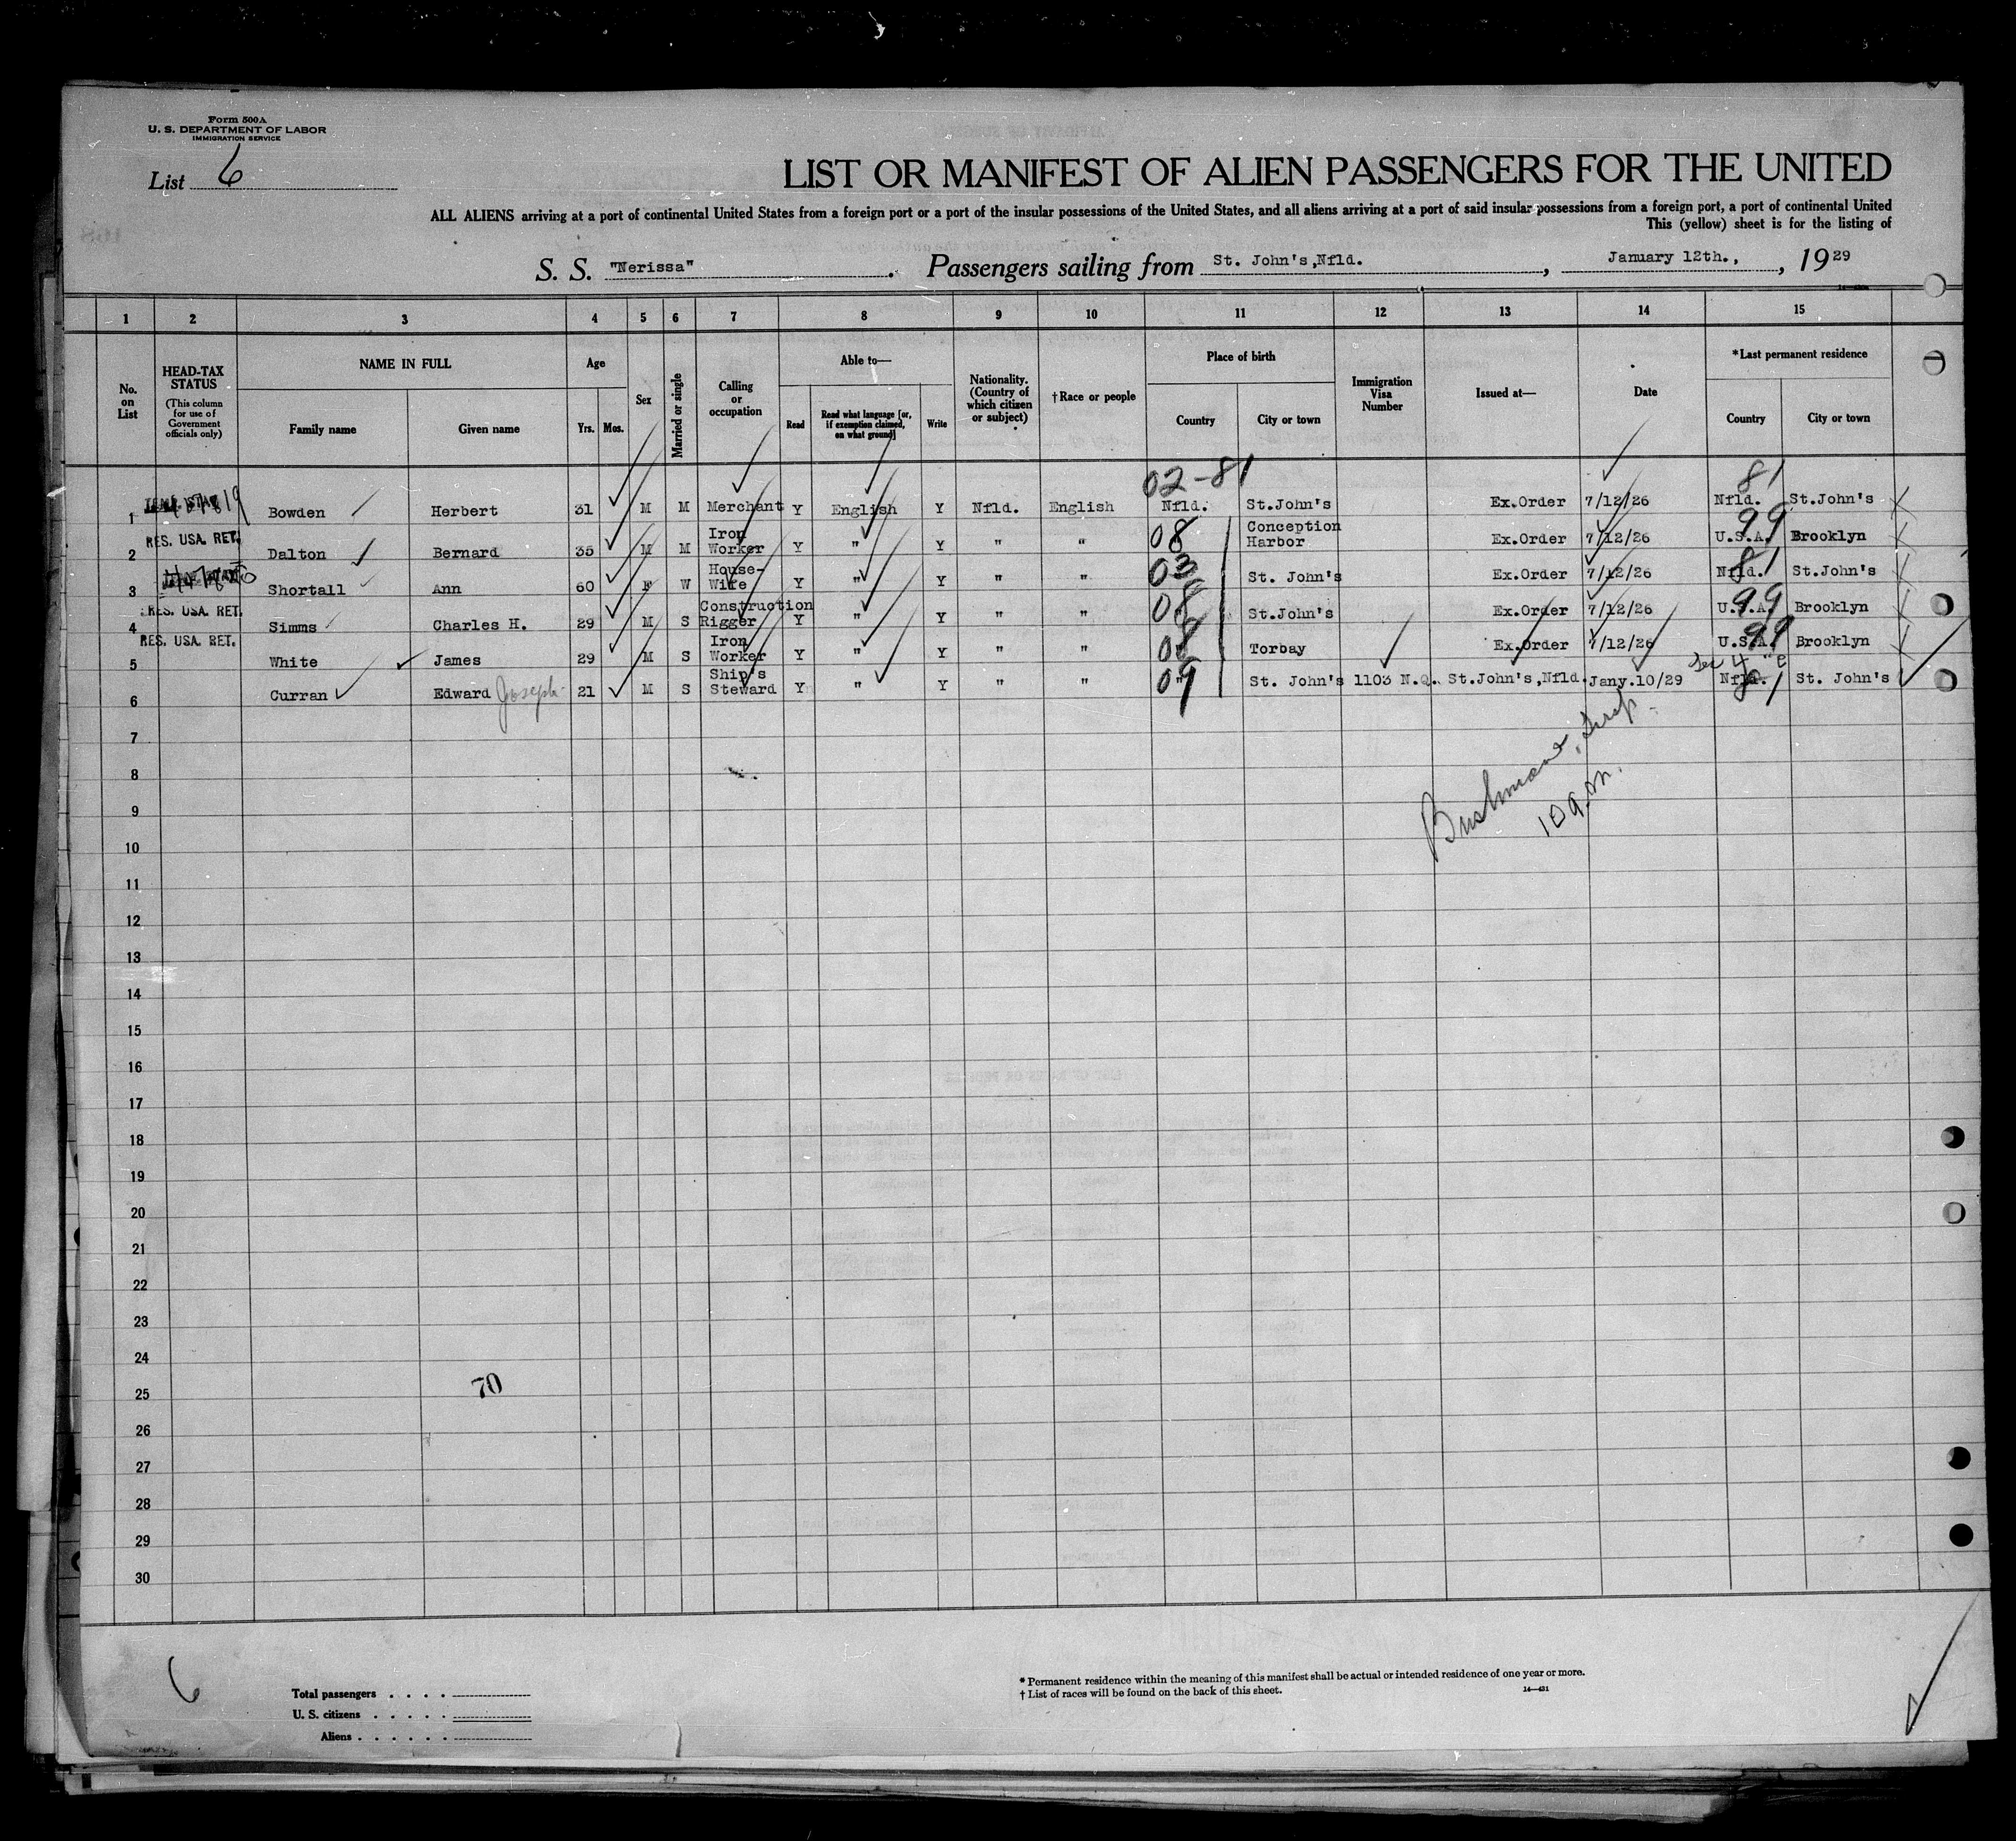 Form 500A
U. S. DEPARTMENT OF LABOR
IMMIGRATION SERVICE
List 6
LIST OR MANIFEST OF ALIEN PASSENGERS FOR THE UNITED
ALL ALIENS arriving at a port of continental United States from a foreign port or a port of the insular possessions of the United States, and all aliens arriving at a port of said insular possessions from a foreign port, a port of continental United
This (yellow) sheet is for the listing of
S. S. "Nerissa" . Passengers sailing from St. John's,Nfld. , January 12th., , 19 29
1 2 3 4 5 6 7 8 9 10 11 12 13 14 15
No. on List
HEAD-TAX STATUS (This column for use of Government officials only)
NAME IN FULL
Family name
Given name
Age
Yrs. Mos.
Sex
Married or single
Calling or occupation
Able to—
Read
Read what language [or, if exemption claimed, on what ground]
Write
Nationality. (Country of which citizen or subject)
†Race or people
Place of birth
Country
City or town
Immigration Visa Number
Issued at—
Date
*Last permanent residence
Country
City or town
02-81 81
1 Bowden Herbert 31 M M Merchant Y English Y Nfld. English Nfld. St.John's Ex.Order 7/12/26 Nfld. St.John's
2 RES. USA. RET. Dalton Bernard 35 M M Iron Worker Y " Y " " 08 Conception Harbor Ex.Order 7/12/26 U.S.A. 99 Brooklyn
3 Shortall Ann 60 F W House-Wife Y " Y " " 03 St. John's Ex.Order 7/12/26 Nfld. 81 St.John's
4 RES. USA. RET. Simms Charles H. 29 M S Construction Rigger Y " Y " " 08 St.John's Ex.Order 7/12/26 U.S.A. 99 Brooklyn
5 RES. USA. RET. White James 29 M S Iron Worker Y " Y " " 08 Torbay Ex.Order 7/12/26 U.S.A. 99 Brooklyn
Sec 4 "e
6 Curran Edward Joseph 21 M S Ship's Steward Y " Y " " 09 St. John's 1103 N.Q. St.John's,Nfld. Jany.10/29 Nfld. 81 St. John's
7
8
Bushman
10 a.m.
9
10
11
12
13
14
15
16
17
18
19
20
21
22
23
24
70
25
26
27
28
29
30
6
Total passengers . . . .
U. S. citizens . . . . .
Aliens . . . . . .
* Permanent residence within the meaning of this manifest shall be actual or intended residence of one year or more.
† List of races will be found on the back of this sheet.
14—431